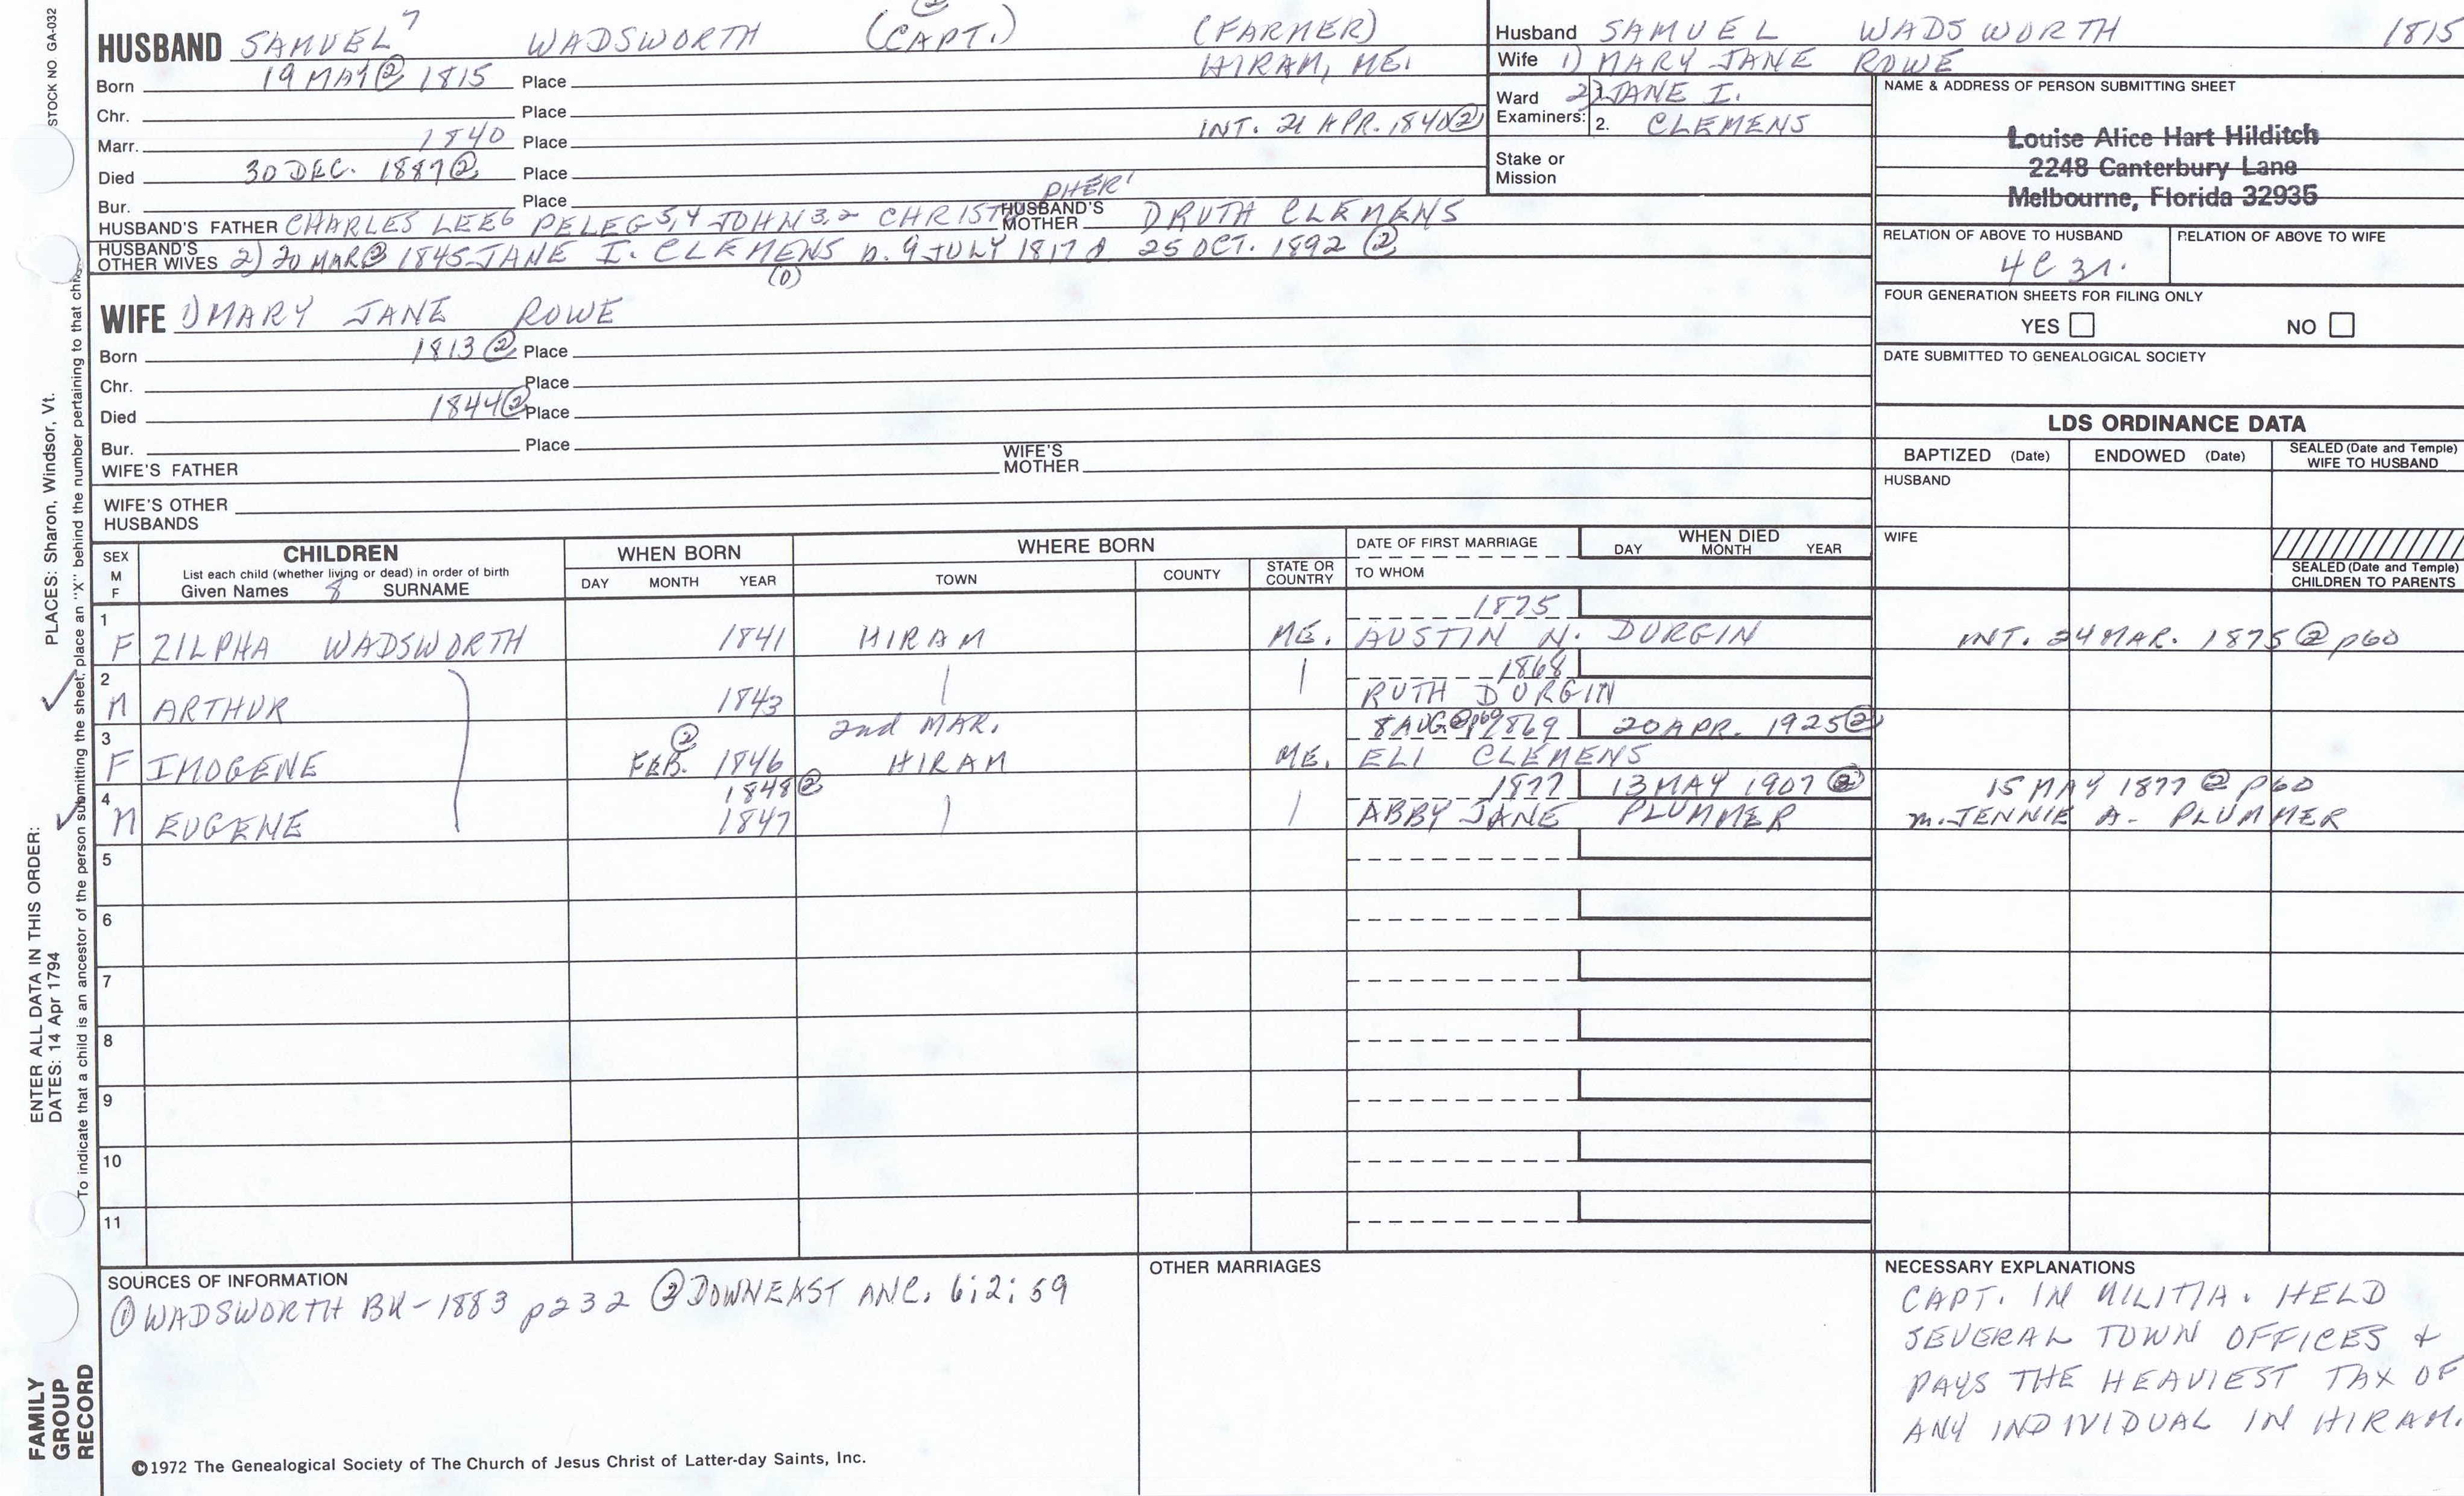 STOCK NO GA-032
HUSBAND SAMUEL 7 WADSWORTH (CAPT.) (FARMER)
Born 19 MAY ② 1815 Place HIRAM, ME.
Chr. Place
Marr. 1840 Place INT. 21 APR. 1840 ②
Died 30 DEC. 1887 ② Place
Bur. Place
HUSBAND'S FATHER CHARLES LEE 6 PELEG 5,4 JOHN 3,2 CHRISTOPHER 1 HUSBAND'S MOTHER DRUTA CLEMENS
HUSBAND'S OTHER WIVES 2) 20 MAR ② 1845 JANE I. CLEMENS b. 9 JULY 1817 d 25 OCT. 1892 ②
(0)
WIFE 1) MARY JANE ROWE
Born 1813 ② Place
Chr. Place
Died 1844 ② Place
Bur. Place
WIFE'S FATHER WIFE'S MOTHER
WIFE'S OTHER HUSBANDS
Husband SAMUEL WADSWORTH 1815
Wife 1) MARY JANE ROWE
Ward 1. 2) JANE I.
Examiners: 2. CLEMENS
Stake or
Mission
NAME & ADDRESS OF PERSON SUBMITTING SHEET
Louise Alice Hart Hilditch
2248 Canterbury Lane
Melbourne, Florida 32935
RELATION OF ABOVE TO HUSBAND RELATION OF ABOVE TO WIFE
4C 3r.
FOUR GENERATION SHEETS FOR FILING ONLY
YES NO
DATE SUBMITTED TO GENEALOGICAL SOCIETY
LDS ORDINANCE DATA
BAPTIZED (Date) ENDOWED (Date) SEALED (Date and Temple) WIFE TO HUSBAND
HUSBAND
WIFE
SEALED (Date and Temple) CHILDREN TO PARENTS
SEX M F CHILDREN WHEN BORN WHERE BORN DATE OF FIRST MARRIAGE WHEN DIED
List each child (whether living or dead) in order of birth
Given Names 8 SURNAME DAY MONTH YEAR TOWN COUNTY STATE OR COUNTRY TO WHOM DAY MONTH YEAR
1 1875
F ZILPHA WADSWORTH 1841 HIRAM ME. AUSTIN N. DURGIN INT. 24 MAR. 1875 ② p60
2 1868
M ARTHUR 1843 RUTH DURGIN
3 ② 2nd MAR. 8 AUG ② p60 1869 20 APR. 1925 ②
F IMOGENE FEB. 1846 HIRAM ME. ELI CLEMENS
4 1848 ② 1877 13 MAY 1907 ② 15 MAY 1877 ② p60
M EUGENE 1847 ABBY JANE PLUMMER m. JENNIE A. PLUMMER
5
6
7
8
9
10
11
SOURCES OF INFORMATION
① WADSWORTH BK - 1883 p232 ② DOWNEAST ANC. 6:2:59
OTHER MARRIAGES
NECESSARY EXPLANATIONS
CAPT. IN MILITIA. HELD
SEVERAL TOWN OFFICES &
PAYS THE HEAVIEST TAX OF
ANY INDIVIDUAL IN HIRAM.
©1972 The Genealogical Society of The Church of Jesus Christ of Latter-day Saints, Inc.
FAMILY
GROUP
RECORD
ENTER ALL DATA IN THIS ORDER:
DATES: 14 Apr 1794
PLACES: Sharon, Windsor, Vt.
To indicate that a child is an ancestor of the person submitting the sheet, place an "X" behind the number pertaining to that